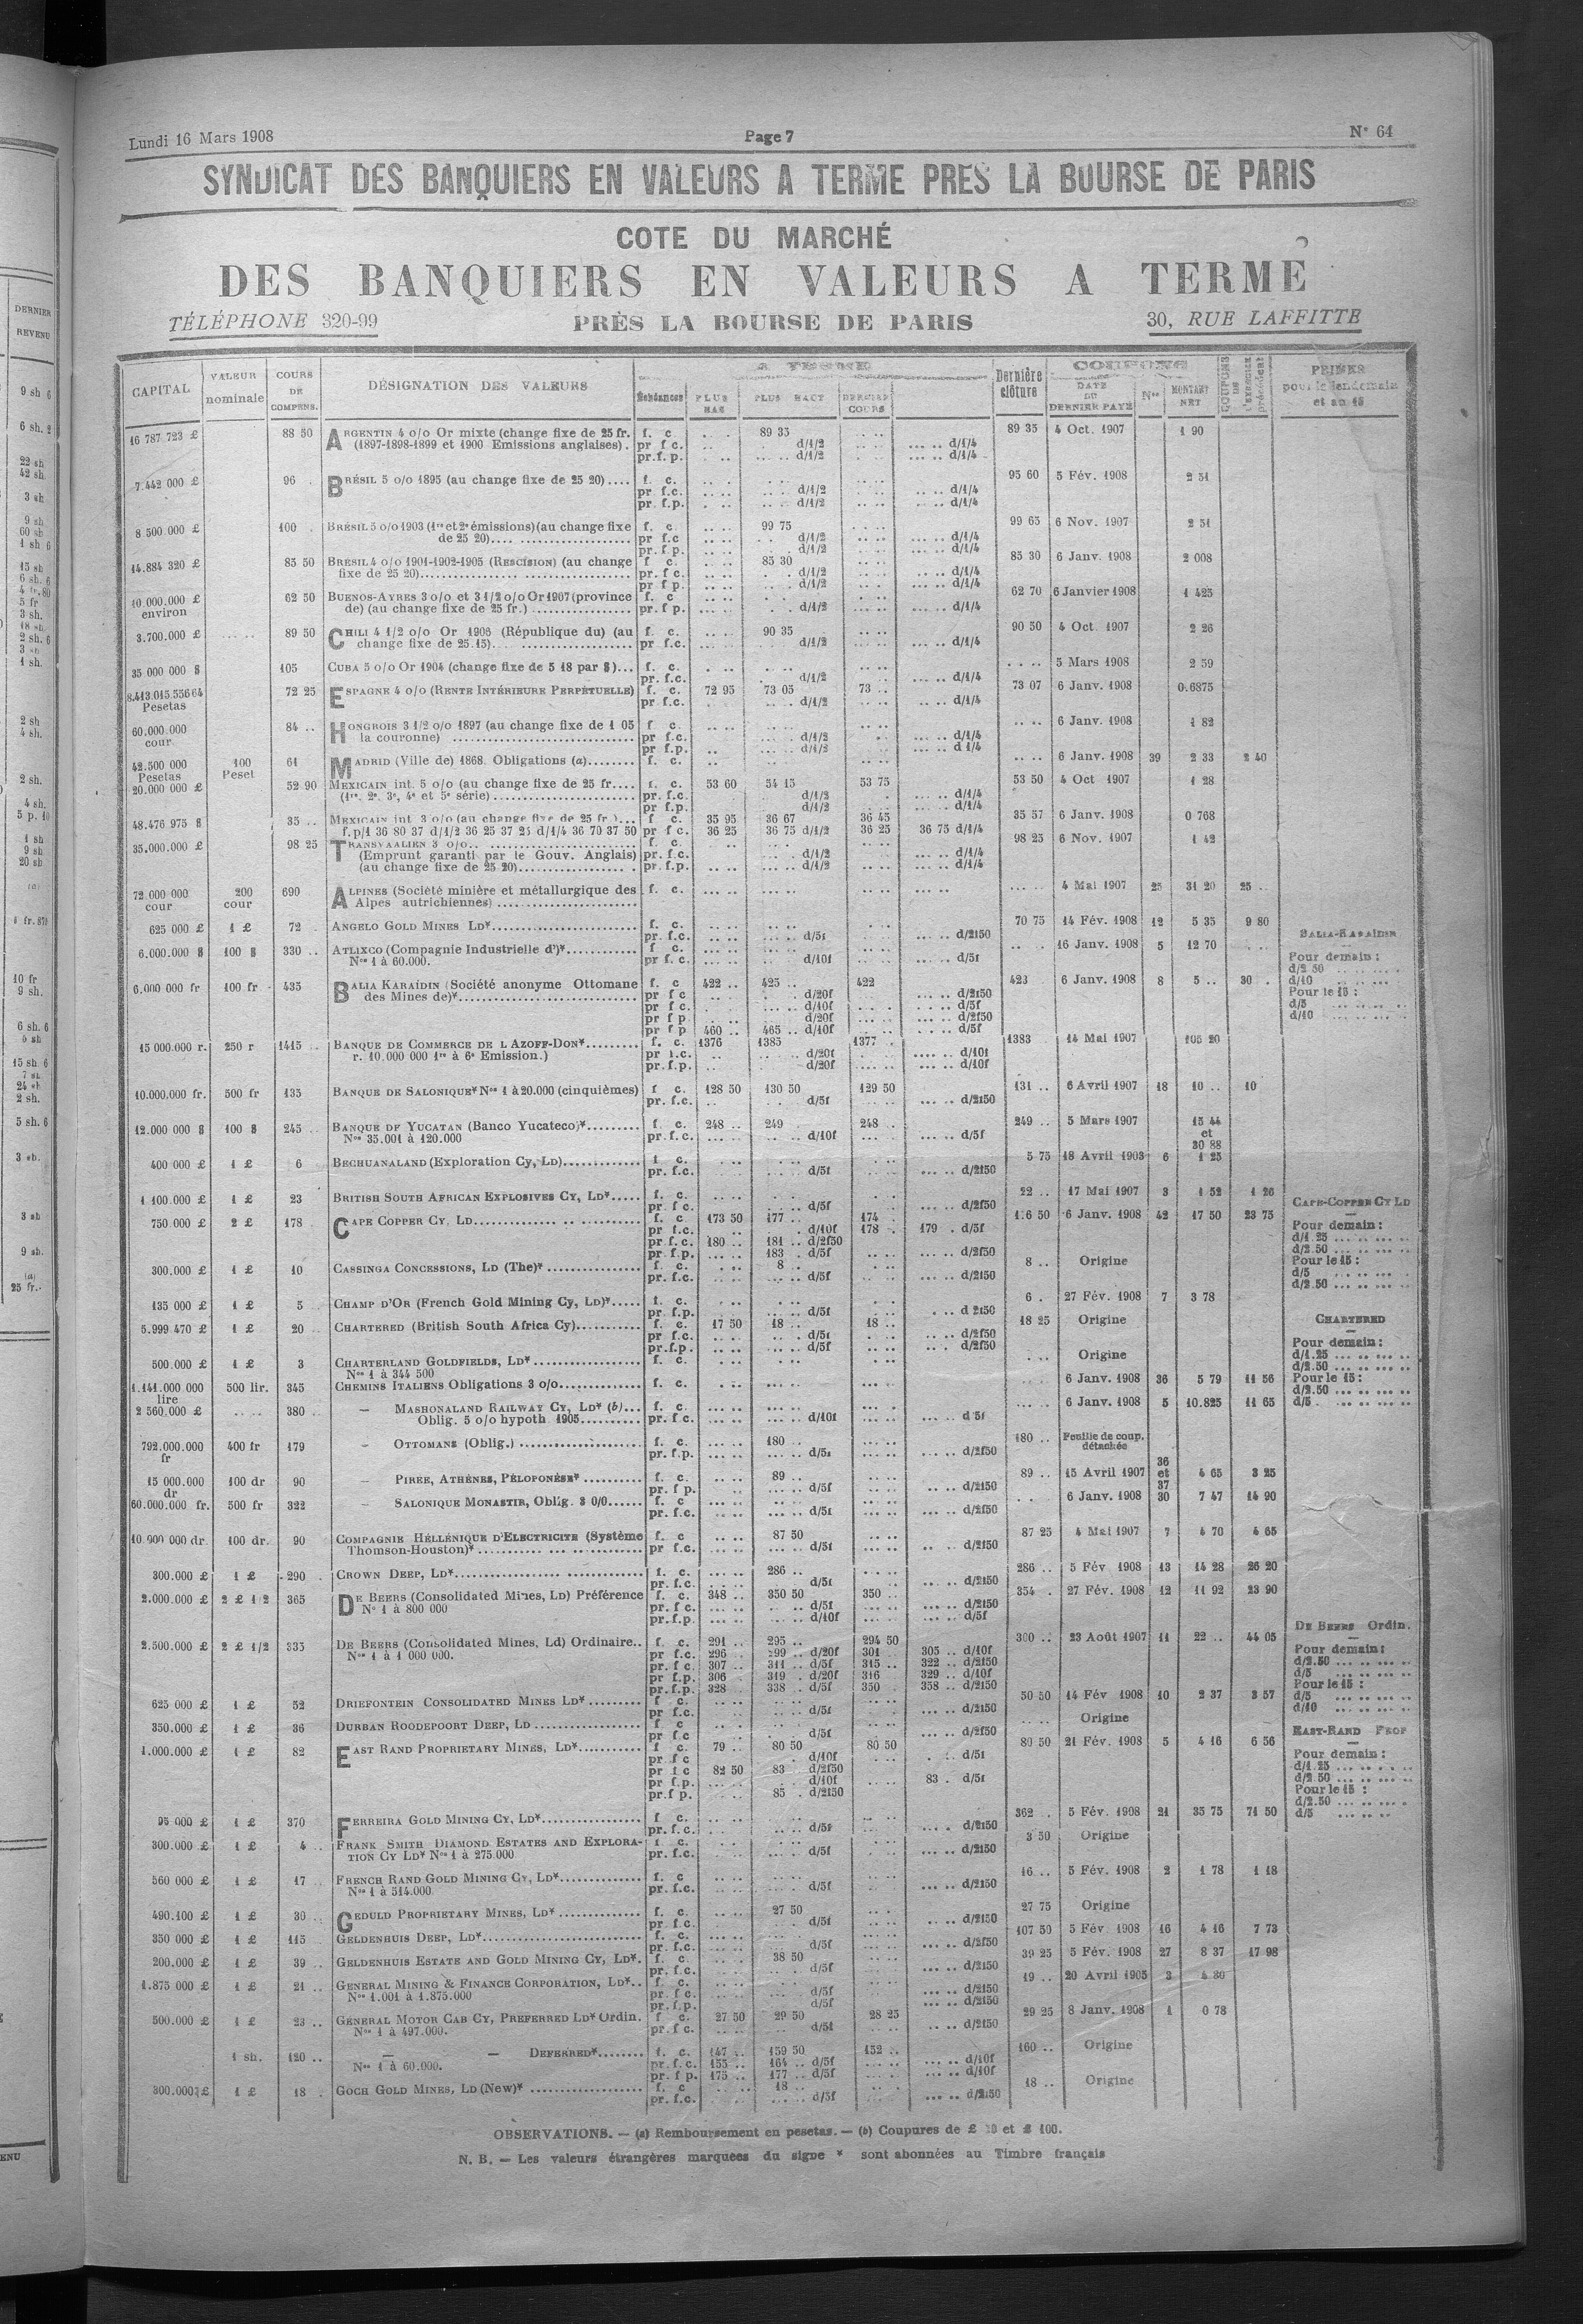 Lundi 16 Mars 1908 Page 7 N° 64
SYNDICAT DES BANQUIERS EN VALEURS A TERME PRES LA BOURSE DE PARIS
COTE DU MARCHÉ
DES BANQUIERS EN VALEURS A TERME
TÉLÉPHONE 320-99 PRÈS LA BOURSE DE PARIS 30, RUE LAFFITTE
CAPITAL VALEUR nominale COURS DE COMPENS. DÉSIGNATION DES VALEURS PLUS BAS PLUS HAUT DERNIER COURS Dernière clôture COUPONS DATE DU DERNIER PAYÉ Nos MONTANT NET PRIMES pour le lendemain et au 15
16 787 723 £ 88 50 ARGENTIN 4 o/o Or mixte (change fixe de 25 fr. f. c. 89 35 89 35 4 Oct. 1907 1 90
(1897-1898-1899 et 1900 Emissions anglaises). pr f c. d/1/2 d/1/4
pr.f.p. d/1/2 d/1/4
7.442 000 £ 96 BRÉSIL 5 o/o 1895 (au change fixe de 25 20).... f. c. 95 60 5 Fév. 1908 2 51
pr f.c. d/1/2 d/1/4
pr. f.p. d/1/2 d/1/4
8 500 000 £ 100 BRÉSIL 5 o/o 1903 (1re et 2e émissions) (au change fixe f. c. 99 75 99 65 6 Nov. 1907 2 51
de 25 20).... pr f.c d/1/2 d/1/4
pr. f p. d/1/2 d/1/4
14.884 320 £ 85 50 BRÉSIL 4 o/o 1901-1902-1905 (RESCISION) (au change f c. 85 30 85 30 6 Janv. 1908 2 008
fixe de 25 20).... pr. f c. d/1/2 d/1/4
pr f p. d/1/2 d/1/4
10.000.000 £ environ 62 50 BUENOS-AYRES 3 o/o et 3 1/2 o/o Or 1907 (province f. c 62 70 6 Janvier 1908 1 425
de) (au change fixe de 25 fr.) .... pr. f p. d/1/2 d/1/4
3.700.000 £ 89 50 CHILI 4 1/2 o/o Or 1906 (République du) (au f. c. 90 35 90 50 4 Oct. 1907 2 26
change fixe de 25.15).... pr f.c. d/1/2 d/1/4
35 000 000 $ 105 CUBA 5 o/o Or 1904 (change fixe de 5 18 par $)... f. c. 5 Mars 1908 2 59
pr. f.c. d/1/2 d/1/4
8.413.015.556 64 Pesetas 72 25 ESPAGNE 4 o/o (RENTE INTÉRIEURE PERPÉTUELLE) f. c. 72 95 73 05 73 .. 73 07 6 Janv. 1908 0.6875
pr. f.c. d/1/2 d/1/4
60.000.000 cour 84 .. HONGROIS 3 1/2 o/o 1897 (au change fixe de 1 05 f c. 6 Janv. 1908 1 82
la couronne) .... pr f.c. d/1/2 d/1/4
pr f.p. d/1/2 d 1/4
42.500 000 Pesetas 100 Peset 61 MADRID (Ville de) 1868. Obligations (a)........ f. c. 6 Janv. 1908 39 2 33 2 40
20.000 000 £ 52 90 MEXICAIN int. 5 o/o (au change fixe de 25 fr.... f. c. 53 60 54 15 53 75 53 50 4 Oct 1907 1 28
(1re. 2e. 3e, 4e et 5e série).... pr. f.c. d/1/2 d/1/4
pr f.p. d/1/2 d/1/4
48.476 975 $ 35 .. MEXICAIN int. 3 o/o (au change fixe de 25 fr.)... f c. 35 95 36 67 36 45 35 57 6 Janv. 1908 0 768
f.p/1 36 80 37 d/1/2 36 25 37 25 d/1/4 36 70 37 50 pr f c. 36 25 36 75 d/1/2 36 25 36 75 d/1/4
35.000.000 £ 98 25 TRANSVAALIEN 3 o/o.. f. c. 98 25 6 Nov. 1907 1 42
(Emprunt garanti par le Gouv. Anglais) pr. f.c. d/1/2 d/1/4
(au change fixe de 25 20).... pr. f.p. d/1/2 d/1/4
72.000 000 cour 200 cour 690 ALPINES (Société minière et métallurgique des f. c. 4 Mai 1907 25 31 20 25 ..
Alpes autrichiennes) ....
625 000 £ 1 £ 72 ANGELO GOLD MINES LD*.... f. c. 70 75 14 Fév. 1908 12 5 35 9 80
pr. f.c. d/5f d/2f50
6.000.000 $ 100 $ 330 .. ATLIXCO (Compagnie Industrielle d')*.... f. c. 16 Janv. 1908 5 12 70
Nos 1 à 60.000. pr f. c. d/10f d/5f
6.000 000 fr 100 fr 435 BALIA KARAÏDIN (Société anonyme Ottomane f. c 422 .. 425 .. 422 423 6 Janv. 1908 8 5 .. 30
des Mines de)*.... pr f c d/20f d/2f50
pr f c. d/10f d/5f
pr f p d/20f d/2f50
pr f p 460 .. 465 .. d/10f d/5f
BALIA-KARAÏDIN
Pour demain :
d/2 50
d/10
Pour le 15 :
d/5
d/10
15 000.000 r. 250 r 1415 BANQUE DE COMMERCE DE L AZOFF-DON*.... f. c. 1376 1385 1377 1383 14 Mai 1907 105 20
r. 10.000 000 1re à 6e Emission.) pr f.c. d/20f d/10f
pr.f.p. d/20f d/10f
10.000.000 fr. 500 fr 135 BANQUE DE SALONIQUE* Nos 1 à 20.000 (cinquièmes) f c. 128 50 130 50 129 50 131 .. 6 Avril 1907 18 10 .. 10
pr. f.c. d/5f d/2f50
12.000 000 $ 100 $ 245 BANQUE DE YUCATAN (Banco Yucateco)*.... f. c. 248 .. 249 248 .. 249 .. 5 Mars 1907 15 44
Nos 35.001 à 120.000 pr. f. c. d/10f d/5f et
30 88
400 000 £ 1 £ 6 BECHUANALAND (Exploration Cy, LD).... f c. 5 75 18 Avril 1903 6 1 25
pr. f.c. d/5f d/2f50
1.100.000 £ 1 £ 23 BRITISH SOUTH AFRICAN EXPLOSIVES CY, LD*..... f. c. 22 .. 17 Mai 1907 3 1 52 1 26
pr f c. d/5f d/2f50
750.000 £ 2 £ 178 CAPE COPPER CY, LD.... f. c 173 50 177 .. 174 176 50 6 Janv. 1908 42 17 50 23 75
pr f.c. d/10f 178 179 d/5f
pr.f.c. 180 .. 181 .. d/2f50
pr. f.p. 183 d/5f d/2f50
CAPE-COPPER CY LD
Pour demain :
d/1.25
d/2.50
Pour le 15 :
d/5
d/2.50
300.000 £ 1 £ 10 CASSINGA CONCESSIONS, LD (The)* .... f. c. 8 .. 8 .. Origine
pr. f.c. d/5f d/2f50
135 000 £ 1 £ 5 CHAMP D'OR (French Gold Mining Cy, LD)*..... f. c. 6 . 27 Fév. 1908 7 3 78
pr f.p. d/5f d 2f50
5.999 470 £ 1 £ 20 CHARTERED (British South Africa Cy).... f. c 17 50 18 .. 18 .. 18 25 Origine
pr f.c. d/5f d/2f50
pr.f.p. d/5f d/2f50
CHARTERED
Pour demain :
d/1.25
d/2.50
Pour le 15 :
d/2.50
d/5
500.000 £ 1 £ 3 CHARTERLAND GOLDFIELDS, LD*.... f. c. Origine
Nos 1 à 344 500
1.141.000 000 lire 500 lir. 345 CHEMINS ITALIENS Obligations 3 o/o.... f. c. 6 Janv. 1908 36 5 79 11 56
2 560.000 £ 380 — MASHONALAND RAILWAY CY, LD* (b)... f. c. 6 Janv. 1908 5 10.825 11 65
Oblig. 5 o/o hypoth 1905.... pr. f c. d/10f d 5f
792.000.000 fr 400 fr 179 — OTTOMANS (Oblig.) .... f. c. 180 .. 180 .. Feuille de coup. détachée
pr. f.p. d/5f d/2f50
15 000.000 dr 100 dr 90 — PIRÉE, ATHÈNES, PÉLOPONÈSE* .... f. c. 89 .. 89 .. 15 Avril 1907 36 et 37 4 65 3 25
pr. f p. d/5f d/2f50
60.000.000 fr. 500 fr 322 — SALONIQUE MONASTIR, Oblig. 3 0/0...... f. c 6 Janv. 1908 30 7 47 14 90
pr. f.c. d/5f d/2f50
10.900 000 dr. 100 dr. 90 COMPAGNIE HELLÉNIQUE D'ELECTRICITE (Système f. c 87 50 87 25 4 Mai 1907 7 4 70 4 65
Thomson-Houston)*.... pr f.c. d/5f d/2f50
300.000 £ 1 £ 290 CROWN DEEP, LD*.... f. c. 286 .. 286 .. 5 Fév 1908 13 14 28 26 20
pr. f.c. d/5f d/2f50
2.000.000 £ 2 £ 1 2 365 DE BEERS (Consolidated Mines, LD) Préférence f. c. 348 .. 350 50 350 .. 354 27 Fév. 1908 12 11 92 23 90
Nos 1 à 800 000 pr. f c. d/5f d/2f50
pr. f.p. d/10f d/5f
2.500.000 £ 2 £ 1/2 335 DE BEERS (Consolidated Mines, Ld) Ordinaire.. f. c. 291 .. 295 .. 294 50 300 .. 23 Août 1907 11 22 .. 44 05
Nos 1 à 1 000 000. pr f.c. 296 299 d/20f 301 305 .. d/10f
pr. f c. 307 .. 311 .. d/5f 315 .. 322 .. d/2f50
pr f.p. 306 319 . d/20f 316 329 .. d/10f
pr.f.p. 328 338 .. d/5f 350 358 .. d/2f50
DE BEERS Ordin.
Pour demain :
d/2.50
d/5
Pour le 15 :
d/5
d/10
625 000 £ 1 £ 52 DRIEFONTEIN CONSOLIDATED MINES LD*.... f c. 50 50 14 Fév 1908 10 2 37 3 57
pr f.c. d/5f d/2f50
350.000 £ 1 £ 36 DURBAN ROODEPOORT DEEP, LD .... f c Origine
pr f.c d/5f d/2f50
1.000.000 £ 1 £ 82 EAST RAND PROPRIETARY MINES, LD*.... f c. 79 .. 80 50 80 50 80 50 21 Fév. 1908 5 4 16 6 56
pr f c d/10f d/5f
pr f c 82 50 83 d/2f50
pr f.p. d/10f 83 . d/5f
pr.f p. 85 . d/2f50
EAST-RAND PROP
Pour demain :
d/1.25
d/2 50
Pour le 15 :
d/2.50
d/5
95 000 £ 1 £ 370 FERREIRA GOLD MINING CY, LD*.... f c. 362 .. 5 Fév. 1908 21 35 75 71 50
pr. f.c. d/5f d/2f50
300.000 £ 1 £ 4 .. FRANK SMITH DIAMOND ESTATES AND EXPLORA- f. c. 3 50 Origine
TION CY LD* Nos 1 à 275.000 pr. f.c. d/5f d/2f50
560 000 £ 1 £ 17 FRENCH RAND GOLD MINING CY, LD*.... f. c 16 .. 5 Fév. 1908 2 1 78 1 18
Nos 1 à 514.000 pr. f.c. d/5f d/2f50
490.100 £ 1 £ 30 .. GEDULD PROPRIETARY MINES, LD* .... f. c. 27 50 27 75 Origine
pr. f c. d/5f d/2f50
350 000 £ 1 £ 115 GELDENHUIS DEEP, LD*.... f. c. 107 50 5 Fév. 1908 16 4 16 7 73
pr. f.c. d/5f d/2f50
200.000 £ 1 £ 39 .. GELDENHUIS ESTATE AND GOLD MINING CY, LD*. f. c. 38 50 39 25 5 Fév. 1908 27 8 37 17 98
pr. f.c. d/5f d/2f50
1.875 000 £ 1 £ 21 .. GENERAL MINING & FINANCE CORPORATION, LD*.. f. c. 19 .. 20 Avril 1905 3 4 30
Nos 1.001 à 1.875.000 pr. f c d/5f d/2f50
pr. f.p. d/5f d/2f50
500.000 £ 1 £ 23 .. GENERAL MOTOR CAB CY, PREFERRED LD* Ordin. f c. 27 50 29 50 28 25 29 25 8 Janv. 1908 1 0 78
Nos 1 à 497.000. pr. f c. d/5f d/2f50
1 sh. 120 .. — — DEFERRED*........ f. c. 147 .. 159 50 152 .. 160 .. Origine
Nos 1 à 60.000. pr. f.c. 155 .. 164 .. d/5f d/10f
pr. f p. 175 .. 177 .. d/5f d/10f
300.000 £ 1 £ 18 . GOCH GOLD MINES, LD (New)* .... f. c 18 .. 18 .. Origine
pr. f.c. d/5f d/2f50
OBSERVATIONS. — (a) Remboursement en pesetas. — (b) Coupures de £ et £ 100.
N. B. — Les valeurs étrangères marquées du signe * sont abonnées au Timbre français